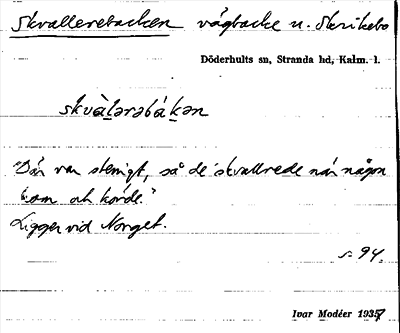 Skvallerebacken vägbacke n. Skrikebo
Döderhults sn, Stranda hd, Kalm. l.
skvàlərəbákən
"Där var stenigt, så de skvallrede när någon
kom och körde."
Ligger vid Norget.
s. 94.
Ivar Modéer 1937